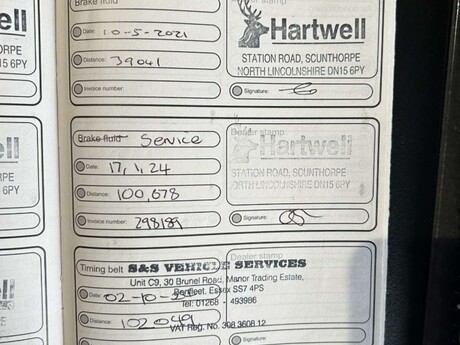 Brake fluid
Dealer stamp
Date: 10-5-2021
Hartwell
Distance: 39041
STATION ROAD, SCUNTHORPE
NORTH LINCOLNSHIRE DN15 6PY
Invoice number:
Signature:
Brake fluid Service
Dealer stamp
Date: 17,1,24
Hartwell
Distance: 100,678
STATION ROAD, SCUNTHORPE
NORTH LINCOLNSHIRE DN15 6PY
Invoice number: 298189
Signature:
Timing belt
Dealer stamp
S&S VEHICLE SERVICES
Unit C9, 30 Brunel Road, Manor Trading Estate,
Benfleet, Essex SS7 4PS
Date: 02-10-
Tel: 01268 - 493986
Distance: 102049
VAT Reg. No. 398 3608 12
ell
THORPE
5 6PY
ell
HORPE
5 6PY
ell
HORPE
6PY